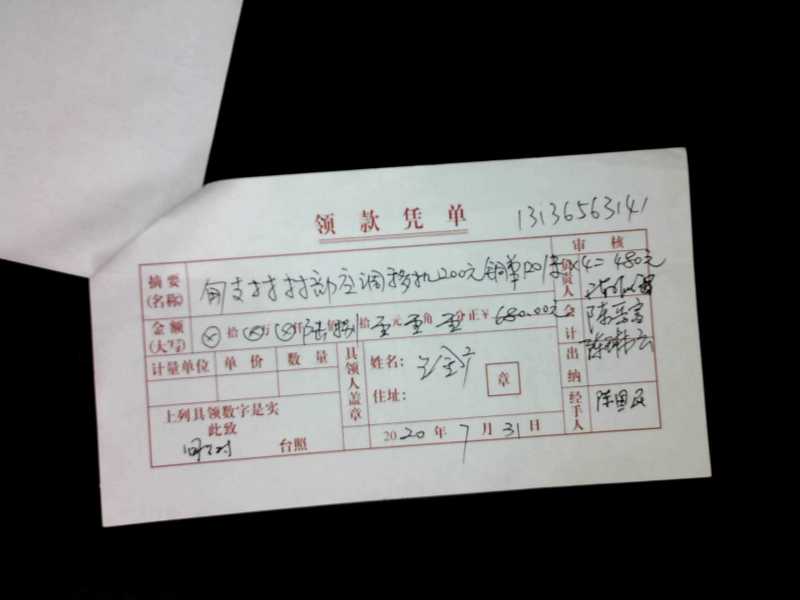 领款凭单
13136563141
审核
摘要(名称) 支村村部空调移机200元铜管120/米×4=480元
负责人
金额(大写) ⊗拾⊗万⊗仟陆佰捌拾零元零角零分正￥680.00元
会计
计量单位 单价 数量
具领人盖章
姓名:
住址:
章
出纳
上列具领数字是实
此致
台照
2020年7月31日
经手人
陈国